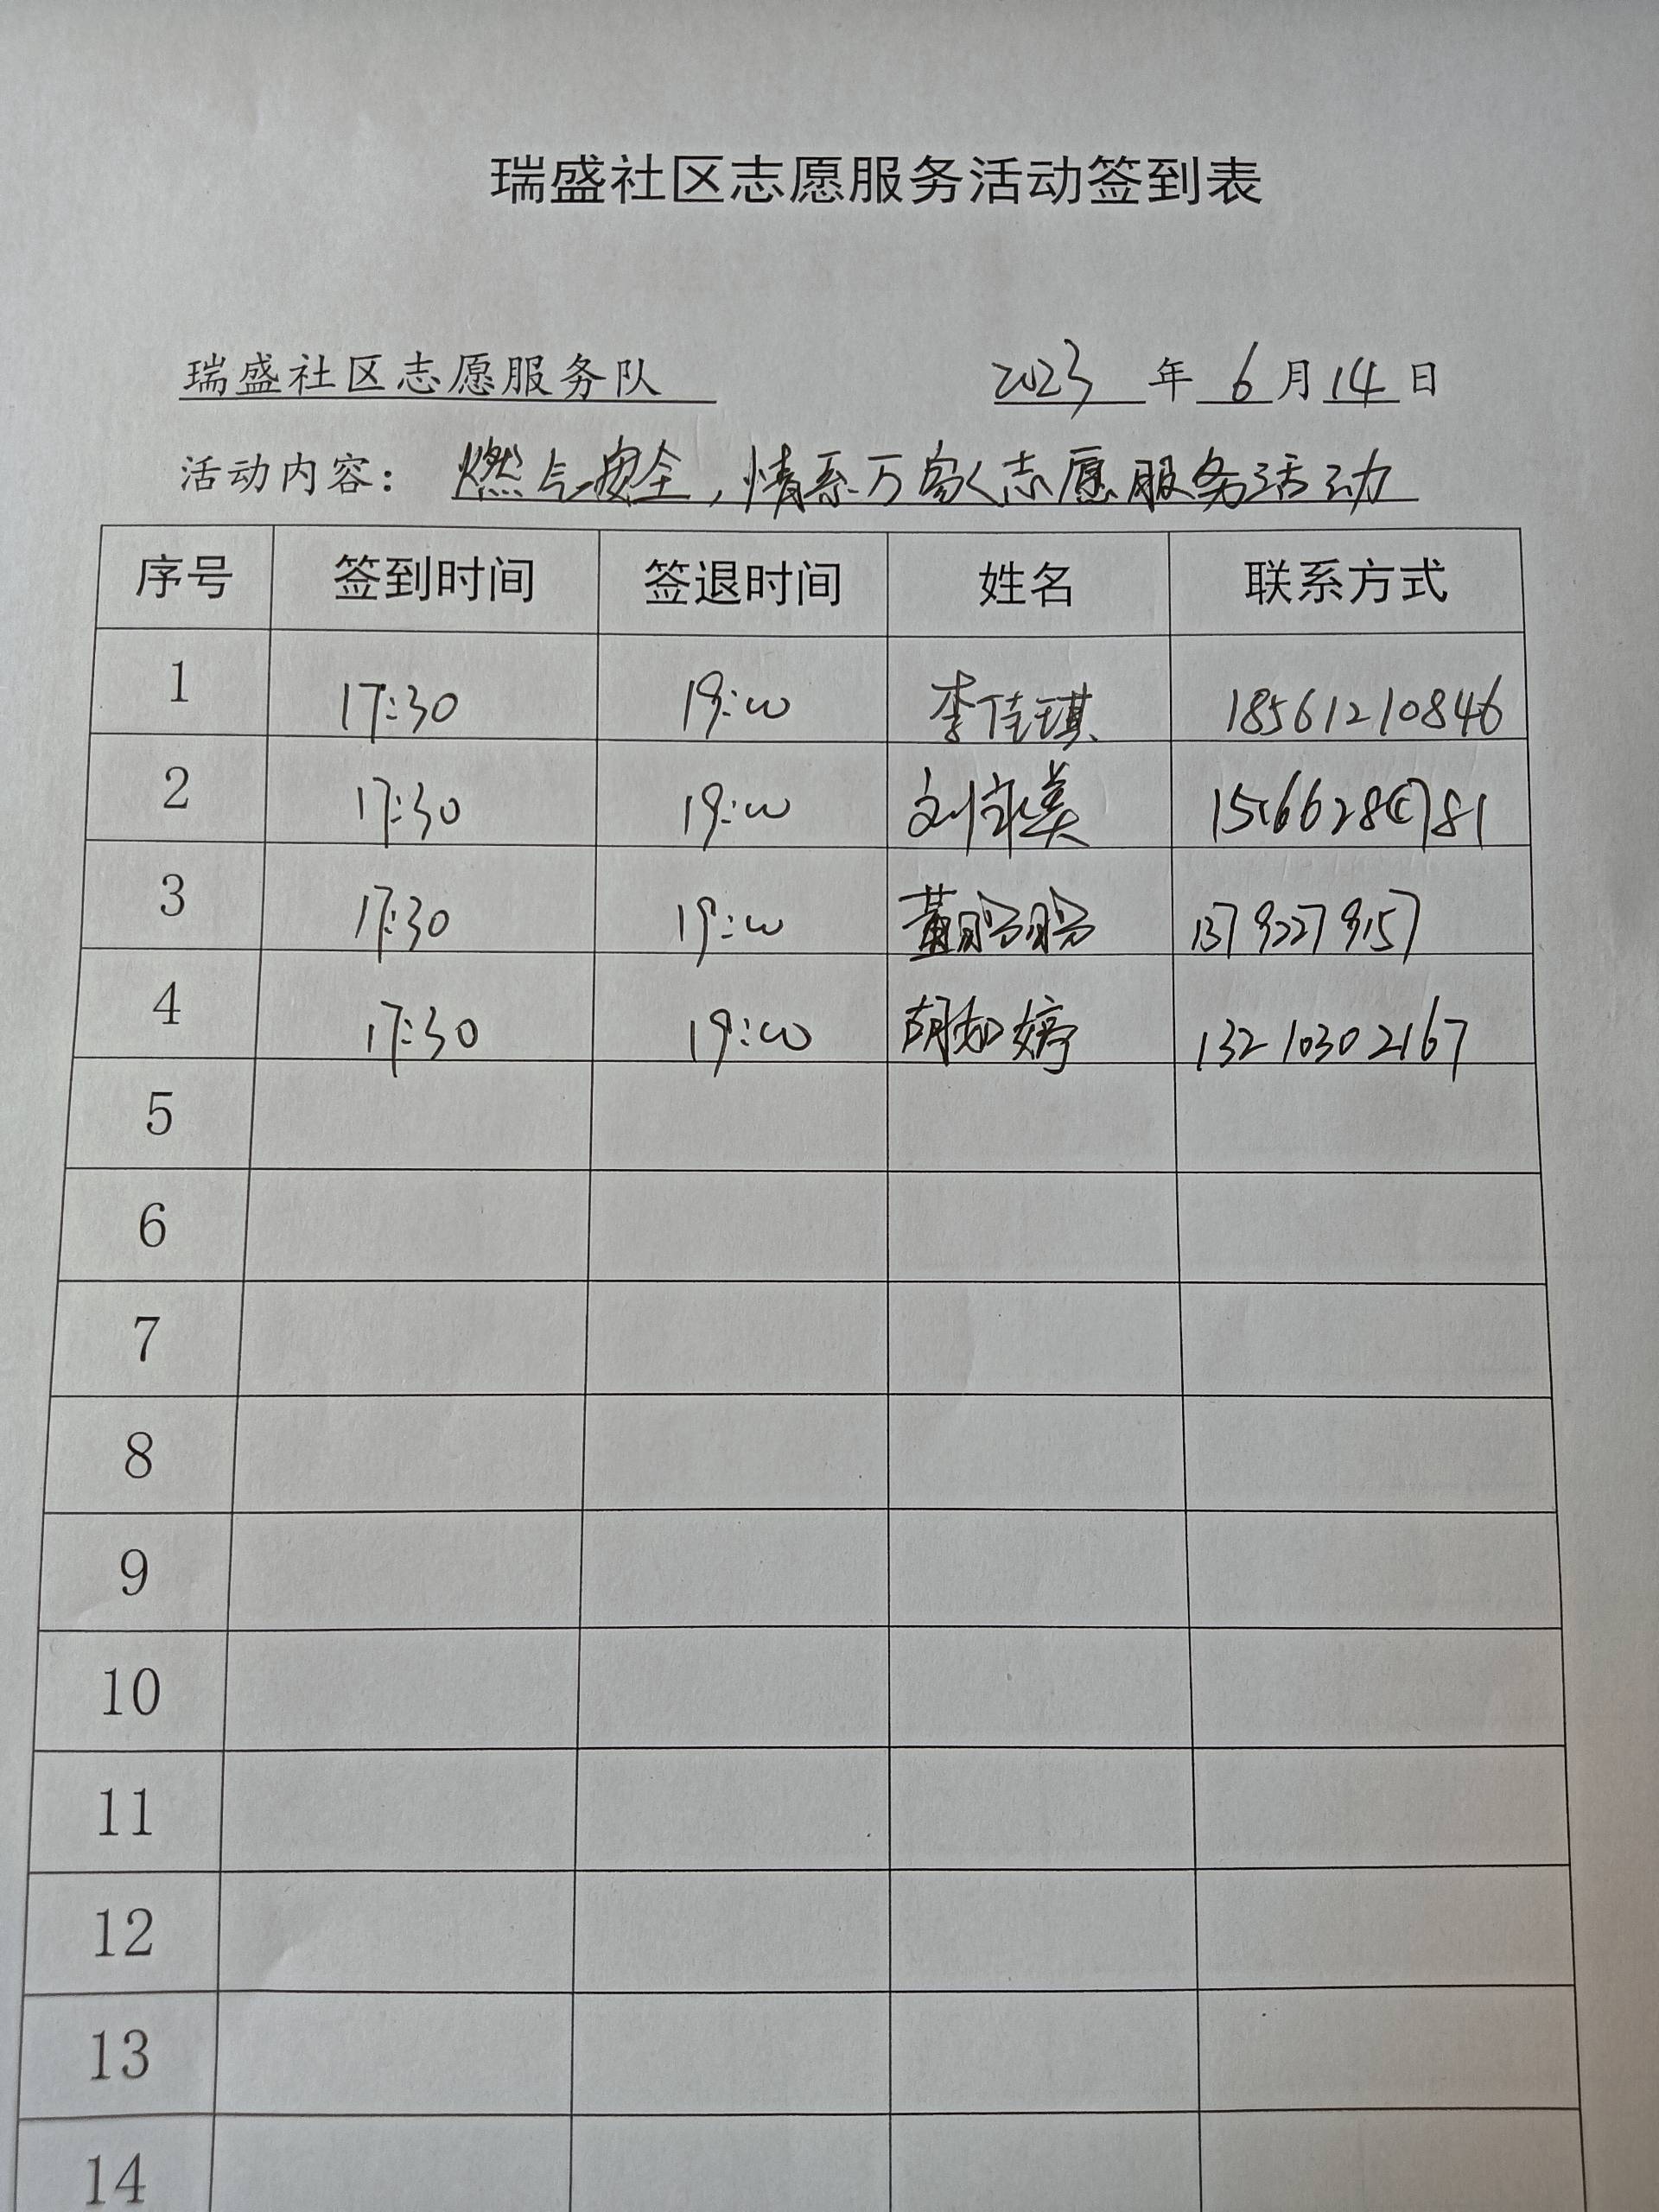 瑞盛社区志愿服务活动签到表
瑞盛社区志愿服务队 2023 年 6 月 14 日
活动内容： 燃气安全，情系万家志愿服务活动
序号 签到时间 签退时间 姓名 联系方式
1 17:30 19:00 李佳琪 18561210846
2 17:30 19:00
3 17:30 19:00 董盼盼 13792279157
4 17:30 19:00 胡如婷 13210302167
5
6
7
8
9
10
11
12
13
14